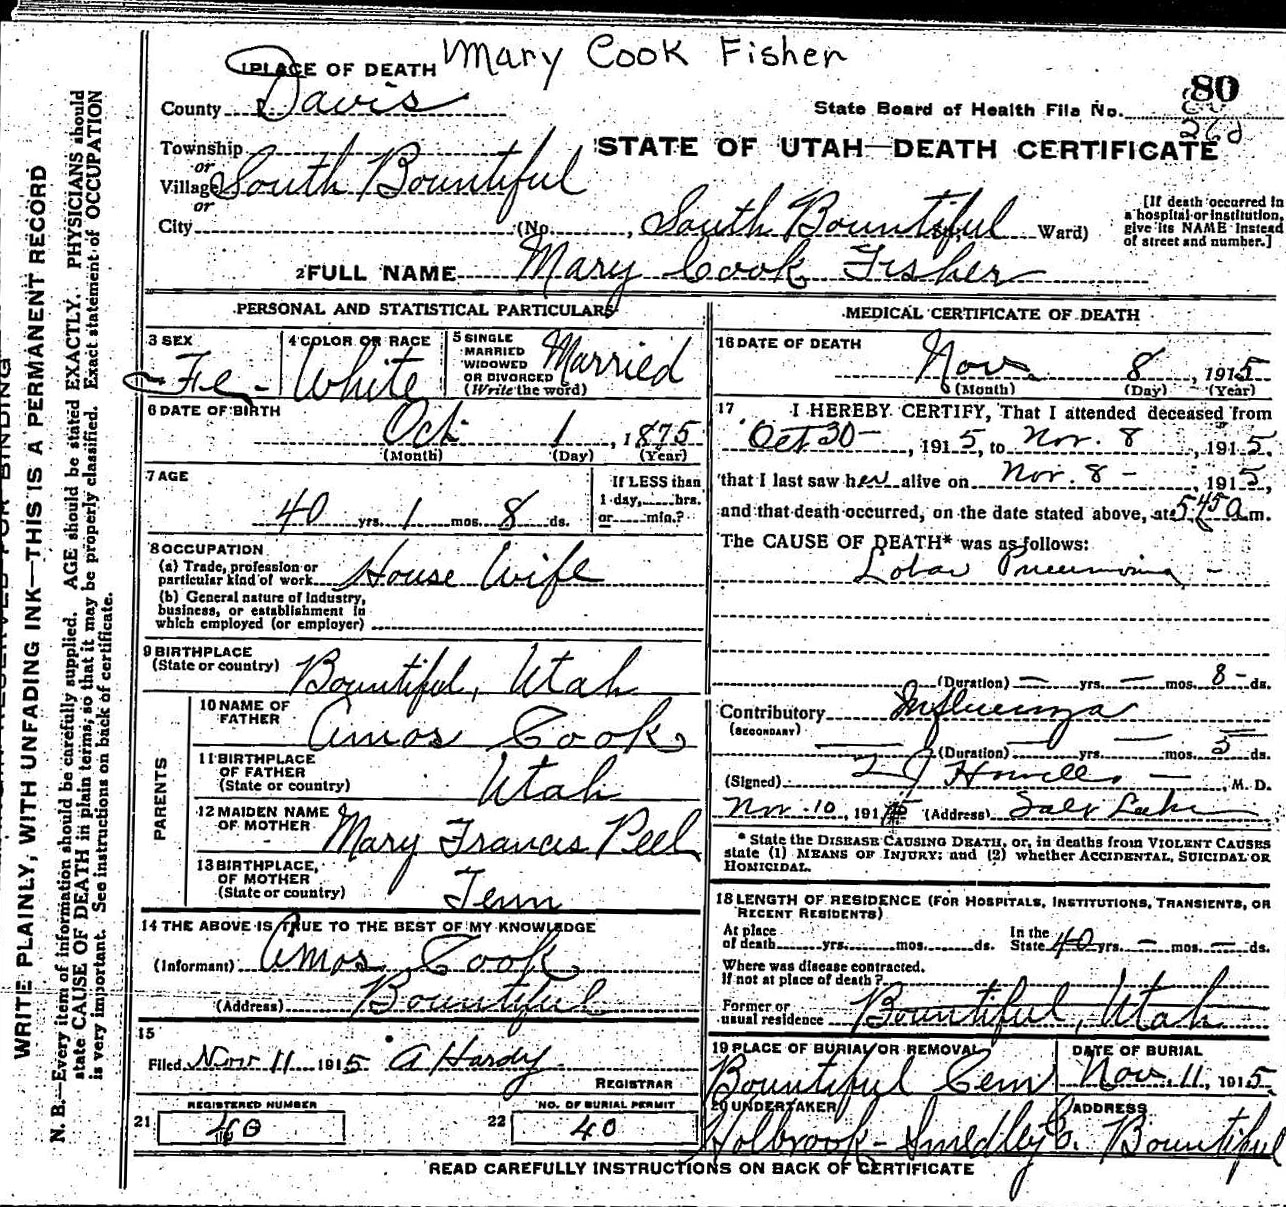 Mary Cook Fisher
1 PLACE OF DEATH
80
County Davis
State Board of Health File No.
Township
or
STATE OF UTAH—DEATH CERTIFICATE
Village South Bountiful
or
City (No. , South Bountiful St., Ward)
[If death occurred in
a hospital or institution,
give its NAME instead
of street and number.]
2 FULL NAME Mary Cook Fisher
PERSONAL AND STATISTICAL PARTICULARS
3 SEX
Fe
4 COLOR OR RACE
White
5 SINGLE
MARRIED
WIDOWED
OR DIVORCED
(Write the word)
Married
6 DATE OF BIRTH
Oct 1, 1875
(Month) (Day) (Year)
7 AGE
40 yrs. 1 mos. 8 ds.
If LESS than
1 day, hrs.
or min.?
8 OCCUPATION
(a) Trade, profession or
particular kind of work House Wife
(b) General nature of industry,
business, or establishment in
which employed (or employer)
9 BIRTHPLACE
(State or country) Bountiful, Utah
PARENTS
10 NAME OF
FATHER Amos Cook
11 BIRTHPLACE
OF FATHER
(State or country) Utah
12 MAIDEN NAME
OF MOTHER Mary Francis Peel
13 BIRTHPLACE,
OF MOTHER
(State or country) Tenn
14 THE ABOVE IS TRUE TO THE BEST OF MY KNOWLEDGE
(Informant) Amos Cook
(Address) Bountiful
15
Filed Nov 11 1915 A Hardy
REGISTRAR
REGISTERED NUMBER
21 40
NO. OF BURIAL PERMIT
22 40
MEDICAL CERTIFICATE OF DEATH
16 DATE OF DEATH
Nov. 8, 1915
(Month) (Day) (Year)
17 I HEREBY CERTIFY, That I attended deceased from
Oct 30-, 1915, to Nov. 8, 1915,
that I last saw her alive on Nov. 8 -, 1915,
and that death occurred, on the date stated above, at 5 45 a m.
The CAUSE OF DEATH* was as follows:
Lobar Pneumonia -
(Duration) — yrs. — mos. 8 - ds.
Contributory Influenza
(SECONDARY)
(Duration) yrs. mos. 5 ds.
(Signed) Howells — , M. D.
Nov. 10, 1915 (Address) Salt Lake
* State the DISEASE CAUSING DEATH, or, in deaths from VIOLENT CAUSES
state (1) MEANS OF INJURY; and (2) whether ACCIDENTAL, SUICIDAL OR
HOMICIDAL.
18 LENGTH OF RESIDENCE (FOR HOSPITALS, INSTITUTIONS, TRANSIENTS, OR
RECENT RESIDENTS)
At place
of death yrs. mos. ds.
In the
State 40 yrs. — mos. — ds.
Where was disease contracted.
If not at place of death?
Former or
usual residence Bountiful, Utah
19 PLACE OF BURIAL OR REMOVAL
Bountiful Cem
DATE OF BURIAL
Nov. 11, 1915
20 UNDERTAKER
Holbrook-Smedley Co.
ADDRESS
Bountiful
READ CAREFULLY INSTRUCTIONS ON BACK OF CERTIFICATE
WRITE PLAINLY, WITH UNFADING INK—THIS IS A PERMANENT RECORD
N. B.—Every item of information should be carefully supplied. AGE should be stated EXACTLY. PHYSICIANS should
state CAUSE OF DEATH in plain terms, so that it may be properly classified. Exact statement of OCCUPATION
is very important. See instructions on back of certificate.